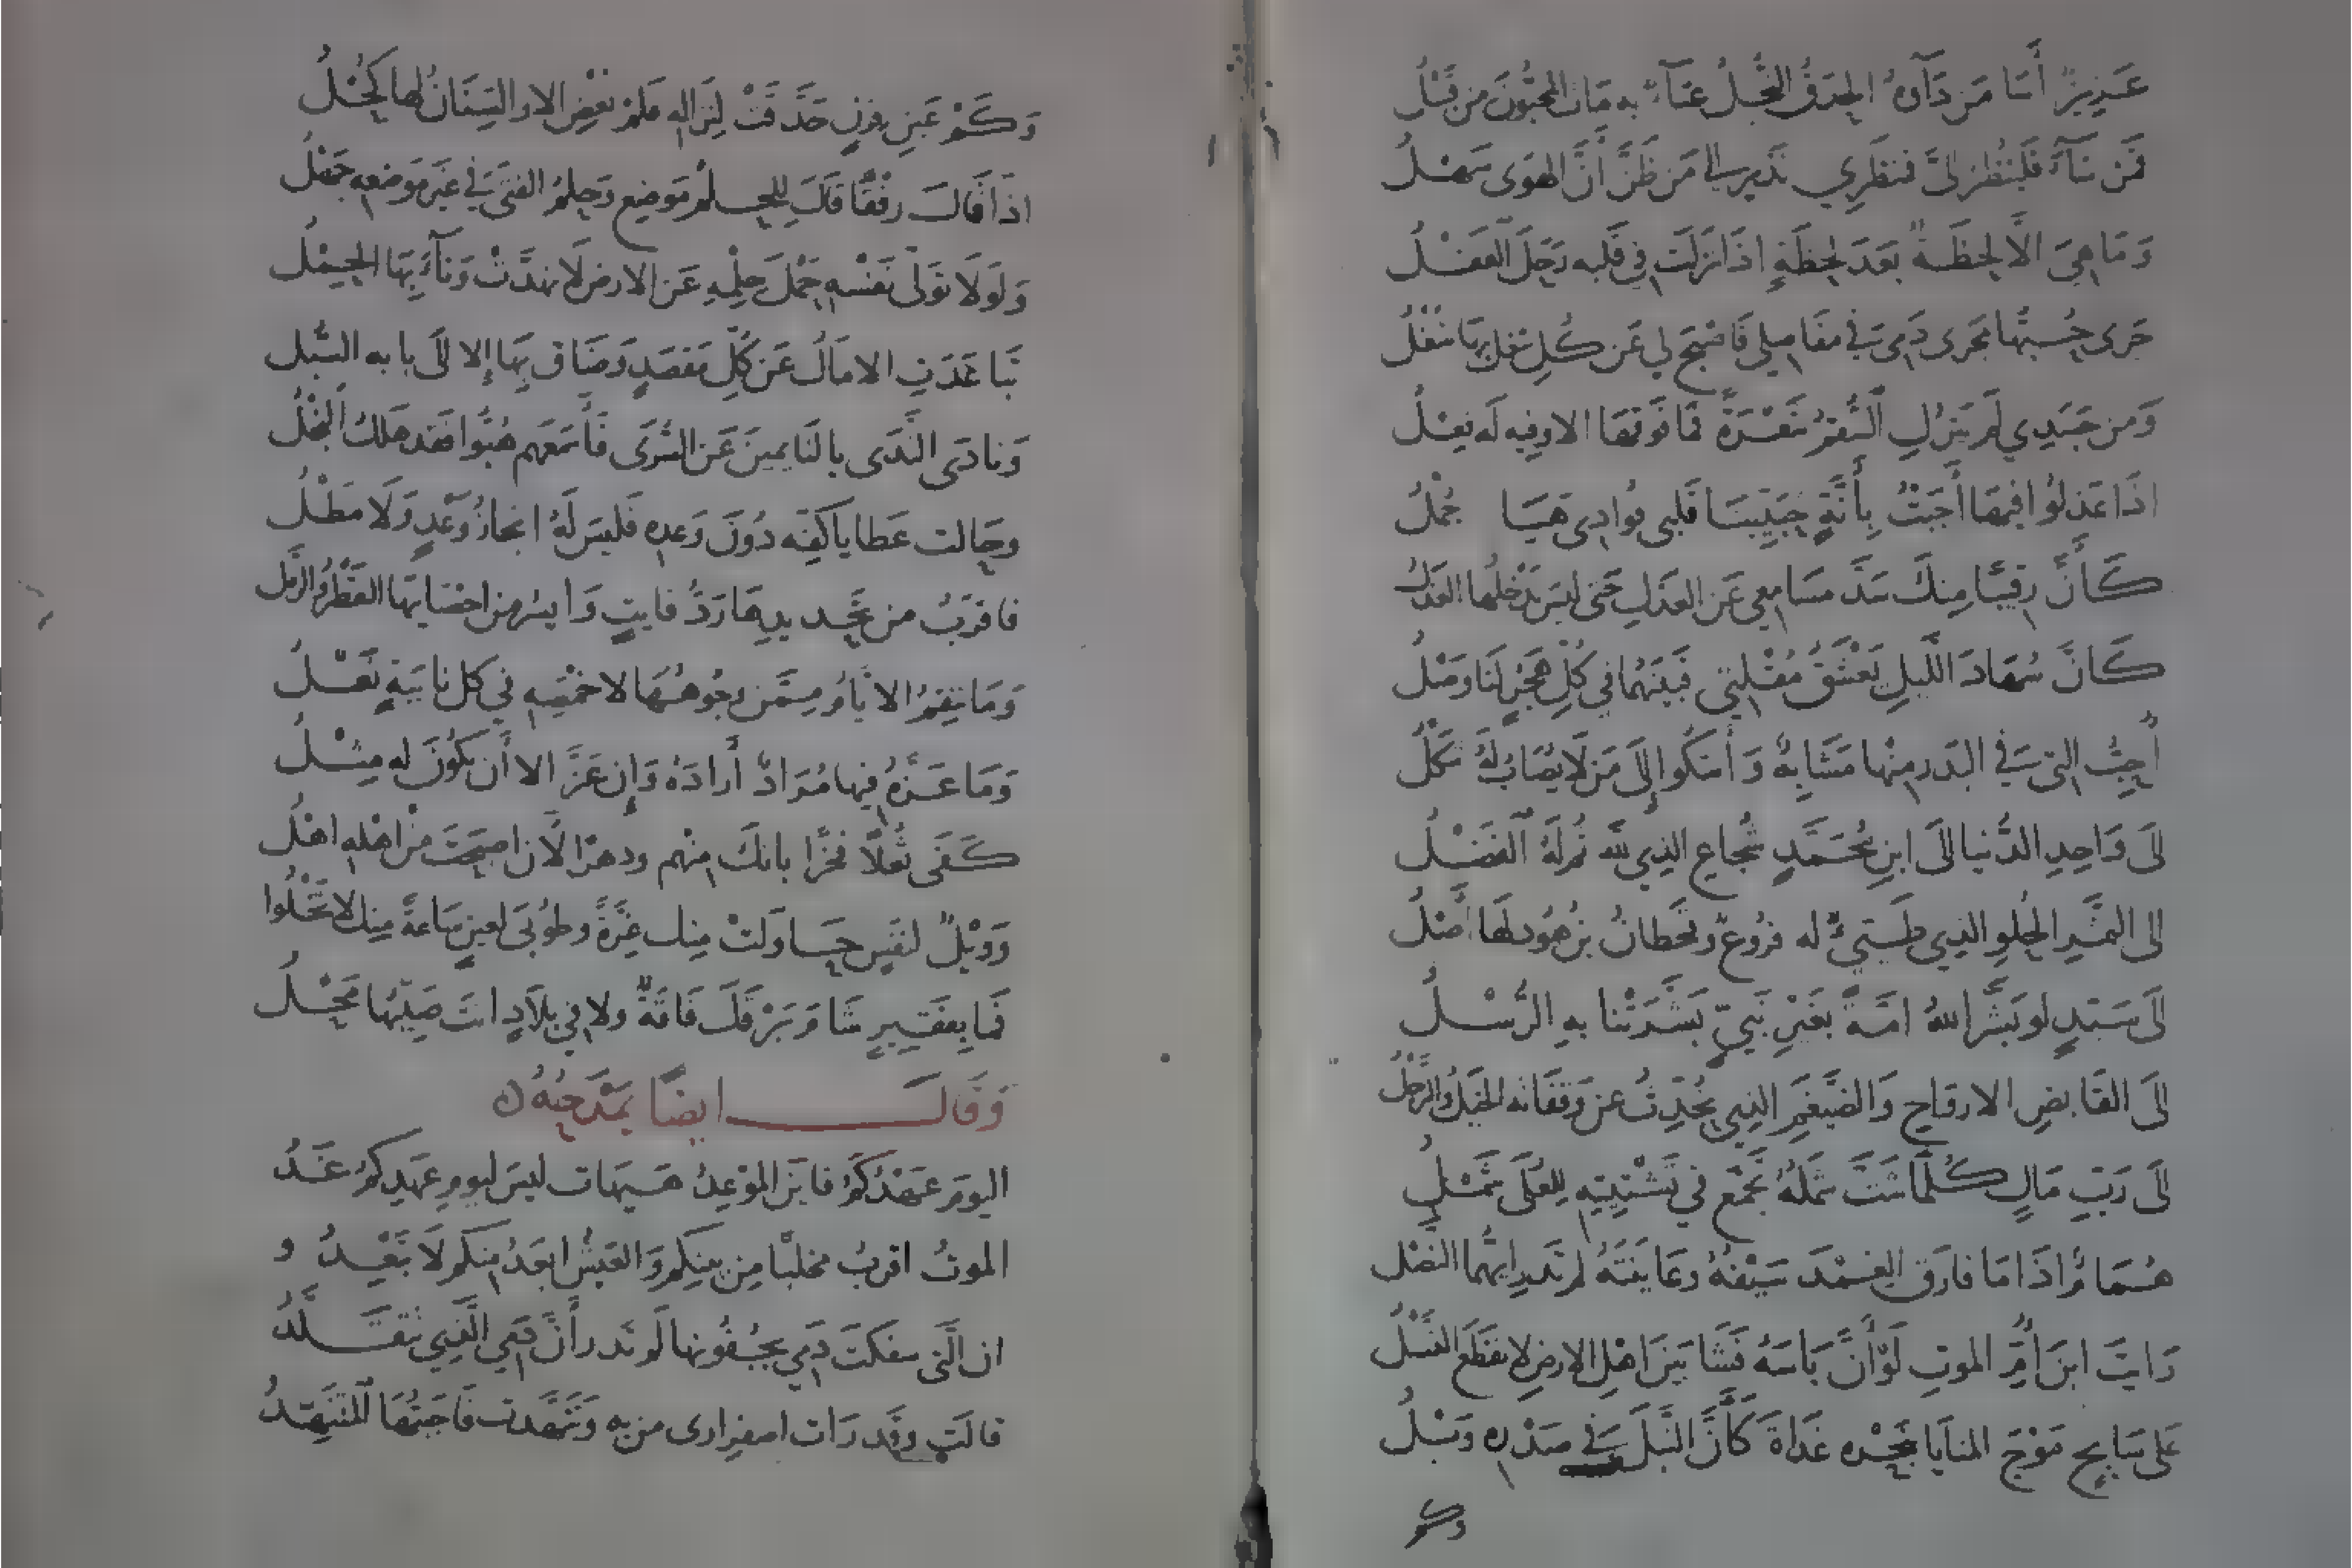 عَزِيزٌ أَسَا مَن دَآؤهُ الحدَقُ النُّجلُ عَيَآءٌ به مَات المحبُّونَ من قَبْلُ
فَمن شَآءَ فَلْيَنْظُر إلىَّ فمنظَرِي نَذير إلى مَن ظَنَّ أَنَّ الهَوَى سَهْلُ
وَمَا هِيَ الَّا لحظَةٌ بَعدَ لحظَةٍ اذَا نَزَلَت فِي قَلبِه رَحَلَ العَقْلُ
جَرَى حُبُّهَا مَجرَى دَمِي في مفَاصِلي فَاصْبَح لي عَن كُلِ شغل بِهَا شُغْلُ
وَمن جَسَدِي لَم يَترُكِ السُّقمُ شَعْرَةً فمَا فَوقهَا الا وفيه لَه فِعْلُ
اذَا عَذلُوا فِيهَا أَجَبْتُ بِأَنَّةٍ حُبَيِّبَتَا قَلبي فُوادِى هَيَا جُمْلُ
كَأَنَّ رقيبًا مِنكَ سَدَّ مسَامِعي عَن العَذلِ حَتى ليسَ يَدخلُها العَذلُ
كَانَّ سُهَادَ اللَّيلِ يَعْشَقُ مُقْلتِي فَبينَهُما في كُلِّ هَجْرٍ لَنَا وَصْلُ
أُحِبُّ التِي في البَدرِ منْها مَشَابِهٌ وَأَشكُوا إِلَى مَن لَا يُصَابُ لَهُ شَكْلُ
إلَى وَاحِدِ الدُّنيا إلَى ابنِ مُحَمَّدٍ شُجاع الذِي لله ثُمَّ لَهُ الفَضْلُ
الى الثمَرِ الحُلوِ الذِي طَيِّيءٌ له فرُوعٌ وَقحطَانُ بن هُود لهَا أَصْلُ
إلَى سَيّدٍ لو بَشَّرَ اللهُ امَّةً بغَيرِ نَبيٍّ بَشَّرَتْنا بهِ الرُّسْلُ
إلَى القَابضِ الارواحِ وَالضَّيْغَمِ الذِي تُحَدِّثُ عَن وَقفَاتِه الخَيلُ والرَّجْلُ
إلَى رَبِّ مَالٍ كُلَّمَا شَتَّ شَملُهُ تَجَمّع في تَشْتِيتِهِ لِلعُلَى شَمْلُ
هُمَامٌ اذَا مَا فارَق الغِمْدَ سَيْفُهُ وعَاينتَهُ لم تَدرِ ايُّهما النَصْل
رَايتَ ابنَ أُمِّ الموتِ لَوْ أَنَّ بَاسَهُ فَشَا بَينَ اهلِ الارضِ لانقَطَعَ النَّسْلُ
عَلى سَابِحٍ مَوْجَ المنَايَا بنَحْرِه غَدَاةَ كَأَنَّ النَّبلَ في صَدْرِه وَبْلُ
وكم
وَكَمْ عَينِ قِرنٍ حَدَّقَتْ لِنِزَالِهِ فلم تغضِ الا والسِّنَانُ لها كُحْلُ
اذَا قَالَ رِفْقًا قَالَ لِلحِلمِ مَوضِع وَحِلمُ الفتَى في غَيرِ مَوضِعِه جَهْلُ
وَلَولَا تَوَلّى نَفْسهِ حَمْلَ حِلْمِهِ عَن الارضِ لَانهدَّتْ وَنآءَ بِهَا الحِمْلُ
تَباعَدَتِ الامَالُ عَن كُلِّ مَقصَدٍ وَضَاق بِهَا إلا إلَى بابه السُّبل
وَنادَى النَّدَى بالنَايمينَ عَن السُّرَى فَأَسمَعَهم هُبُّوا فقد هَلكَ البُخْلُ
وحَالت عَطايا كَفّه دُونَ وَعدِه فَليسَ لَهُ انجازُ وَعْدٍ وَلَا مَطْلُ
فاقرَبُ من تحديدِهَا رَدُّ فايتٍ وَايسَرُ من احصَايهَا القَطْرُ والرَّمْل
وَمَا تنقِمُ الايَّامُ مِمَّن وجُوهُهَا لاخمَصِهِ في كل نايبَةٍ نَعْلُ
وَمَا عَزَّهُ فيها مُرَادٌ أَرادَهُ وَإِن عَزَّ الا أَن يَكُونَ له مِثْلُ
كَفَى ثُعَلًا فخرًا بانكَ مِنْهم ودهرٌ الأن اصبَحتَ مِنْ اهْلِهِ اهْلُ
وَوَيْلٌ لنفسٍ حَاوَلَتْ مِنك غِرَّةً وطُوبَى لعينٍ سَاعةً مِنك لا تَخْلُوا
فَمَا بِفَقيرٍ شَامَ بَرْقَكَ فَاقَةٌ ولا فِي بلَادٍ انتَ صَيّبُهَا مَحْلُ
وَقَالَ ايضًا يَمْدَحُهُ
اليومَ عَهْدُكمُ فاينَ المَوْعِدُ هَيهَات ليسَ ليومِ عَهدِكمُ غَدُ
الموتُ اقربُ مخلبًا مِن بينِكم وَالعَيشُ ابعَدُ مِنكم لَا تَبْعِدُو
ان الّتى سفكَت دَمِي بجُفُونها لَم تَدرِ أَنَّ دَمِي الَّذِي تَتقَلَّدُ
قالَت وقَد رَات اصفِرارى من به وَتَنَهَّدَت فَاجَبْتُهَا المتَنَهِّدُ